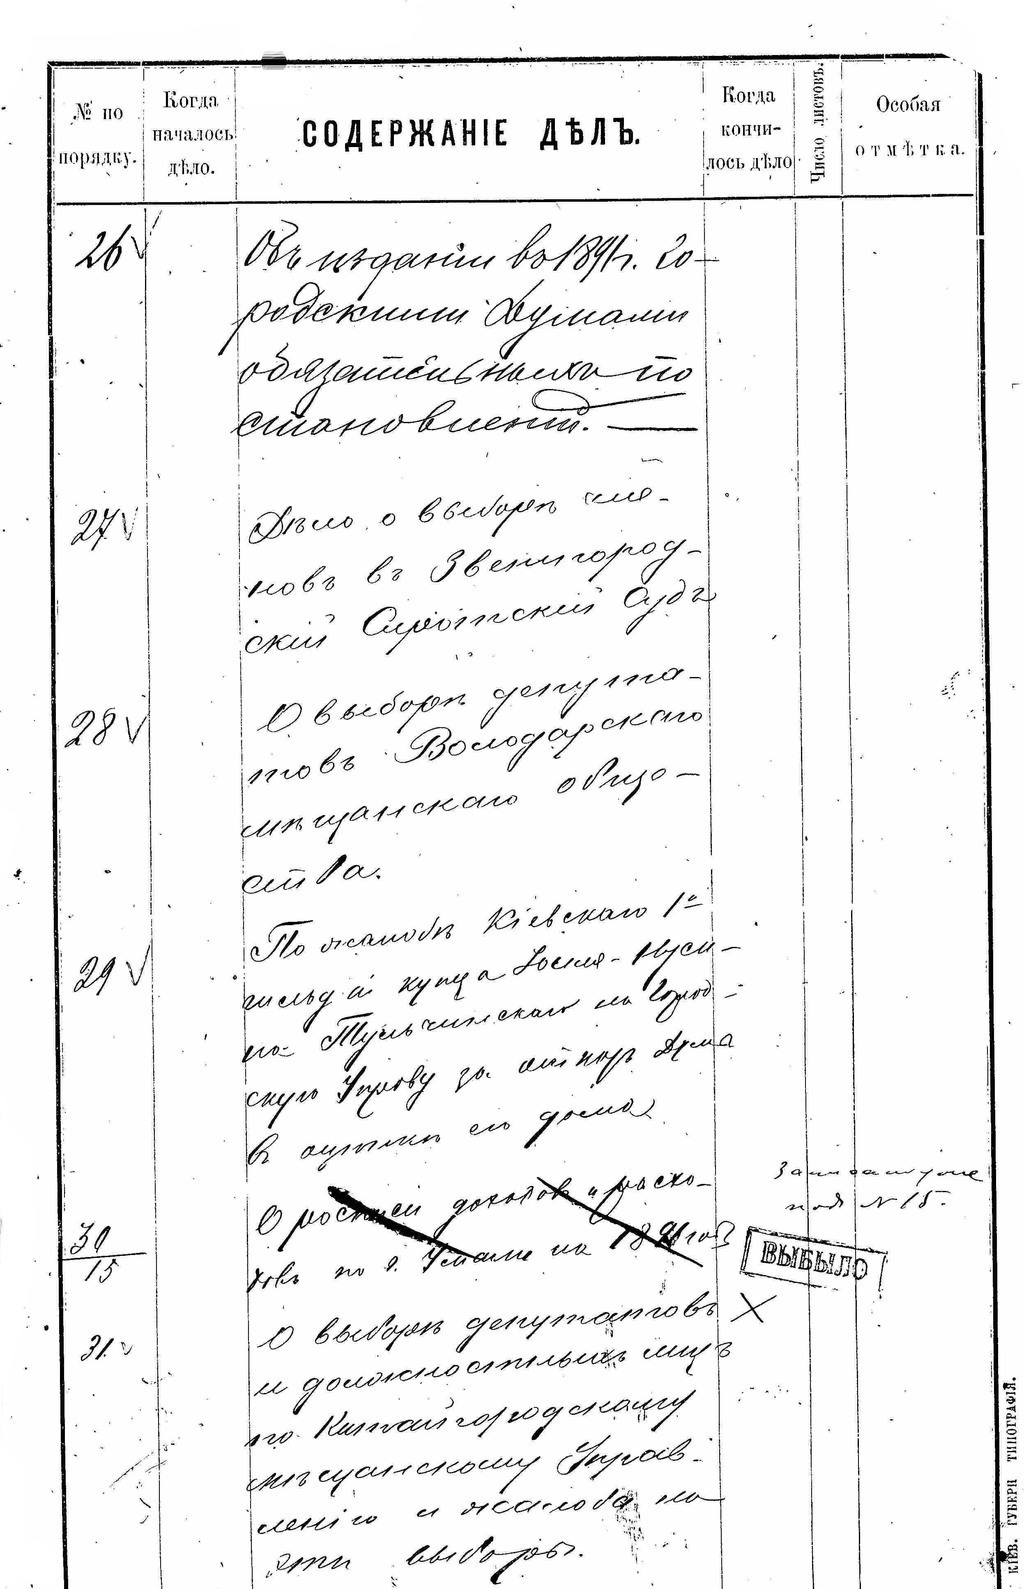 № по порядку.
Когда началось дѣло.
СОДЕРЖАНІЕ ДѢЛЪ.
Когда кончи-лось дѣло
Число листовъ.
Особая отмѣтка.
26
Объ изданіи въ 1891 г. Го-
родскими Думами
обязательныхъ по
становленій.
27
Дѣло о выборѣ чле-
новъ въ Звенигород-
скій Сиротскій Судъ
28
О выборѣ депута-
товъ Володарскаго
мѣщанскаго обще-
ства.
29
По жалобѣ Кіевскаго 1й
гильдіи купца
Тульчинскаго на Город-
скую Управу за
въ оцѣнкѣ его дома
30/15
О росписи доходовъ и расхо-
довъ по г. Умани на 1891 годъ
Записан
под N 15.
ВЫБЫЛО
31.
О выборѣ депутатовъ
и должностныхъ лицъ
по Китайгородскому
мѣщанскому Управ-
ленію и жалоба на
эти выборы.
КІЕВ. ГУБЕРН ТИПОГРАФІЯ.